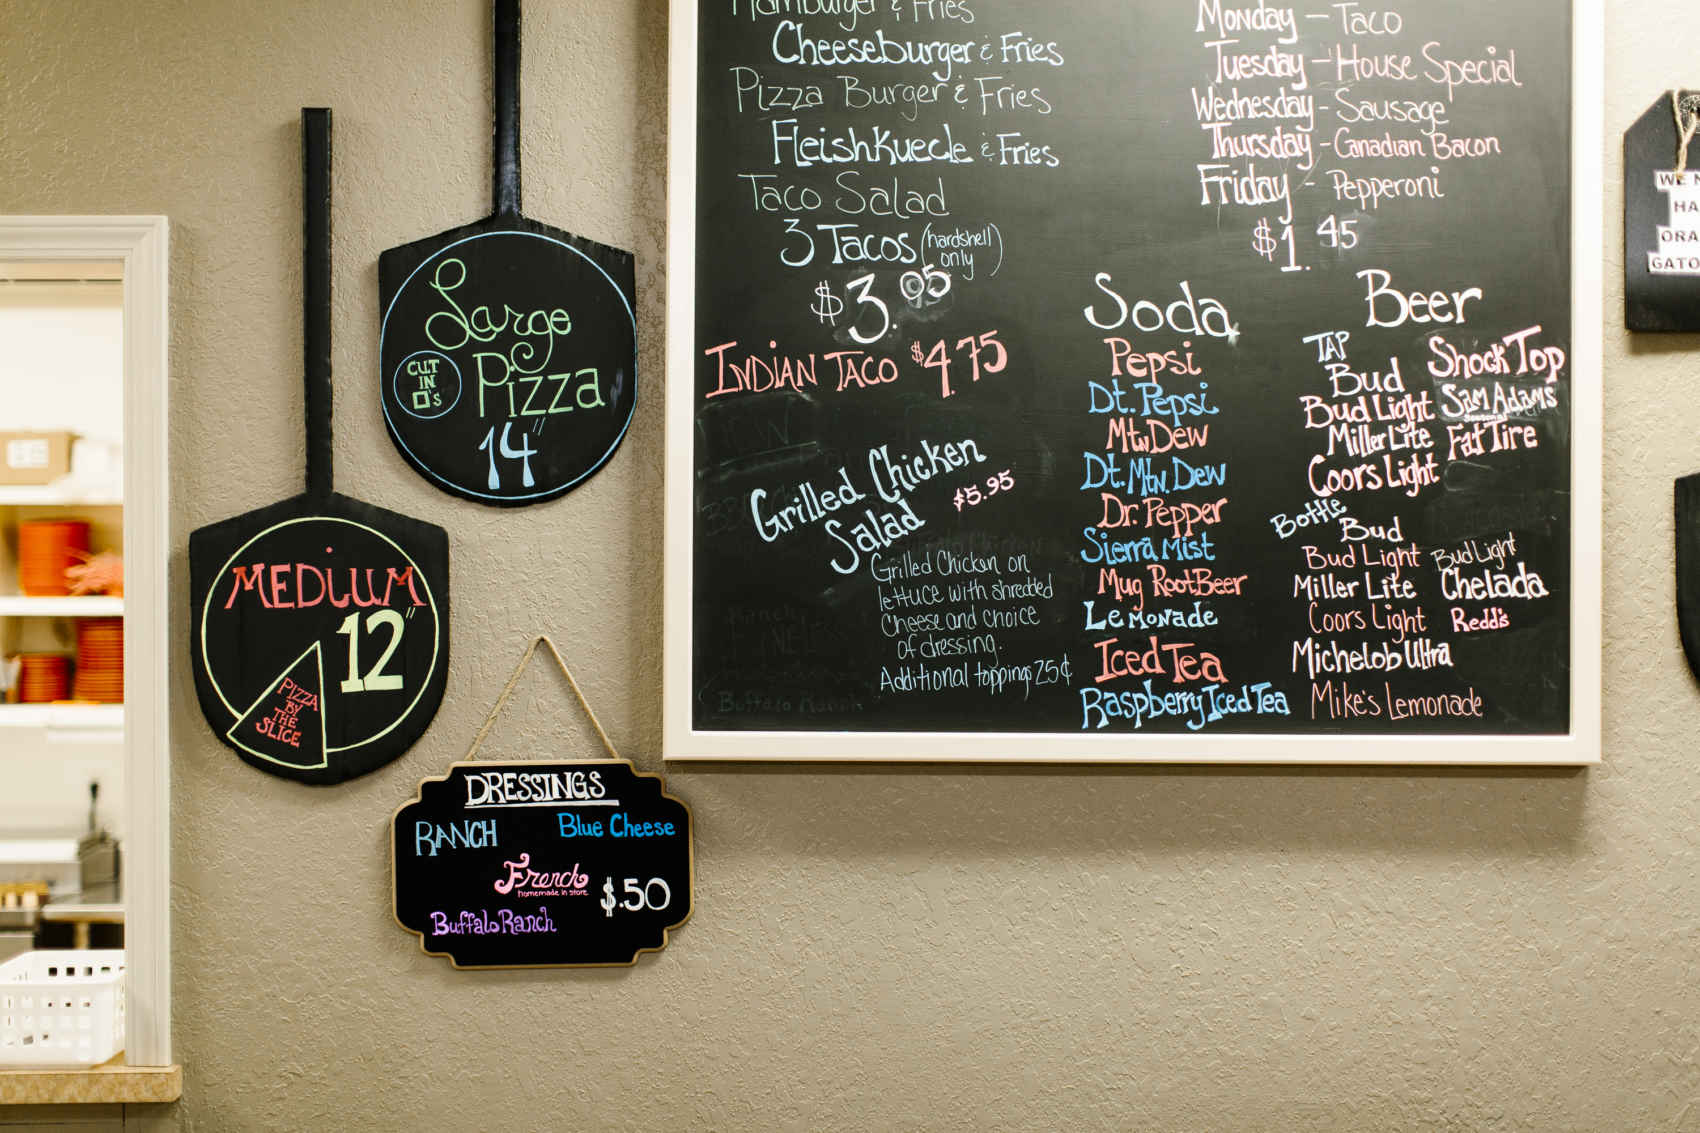 Large
Pizza
CUT
IN
□'s
14"
MEDIUM
12"
PIZZA
BY
THE
SLICE
DRESSINGS
RANCH
Blue Cheese
French
homemade in store
$.50
Buffalo Ranch
Hamburger & Fries
Cheeseburger & Fries
Pizza Burger & Fries
FleishKuecle & Fries
Taco Salad
3 Tacos (hardshell only)
$3.95
INDIAN TACO $4.75
Grilled Chicken
Salad
$5.95
Grilled Chicken on
lettuce with shredded
Cheese and choice
of dressing.
Additional toppings 25¢
Monday - Taco
Tuesday - House Special
Wednesday - Sausage
Thursday - Canadian Bacon
Friday - Pepperoni
$1.45
Soda
Pepsi
Dt. Pepsi
Mtn Dew
Dt. Mtn. Dew
Dr. Pepper
Sierra Mist
Mug RootBeer
Lemonade
Iced Tea
Raspberry Iced Tea
Beer
TAP
Bud
Bud Light
Miller Lite
Coors Light
Shock Top
Sam Adams
Seasonal
Fat Tire
Bottle
Bud
Bud Light
Miller Lite
Coors Light
Michelob Ultra
Mike's Lemonade
Bud Light
Chelada
Redd's
WE
HA
ORA
GATO